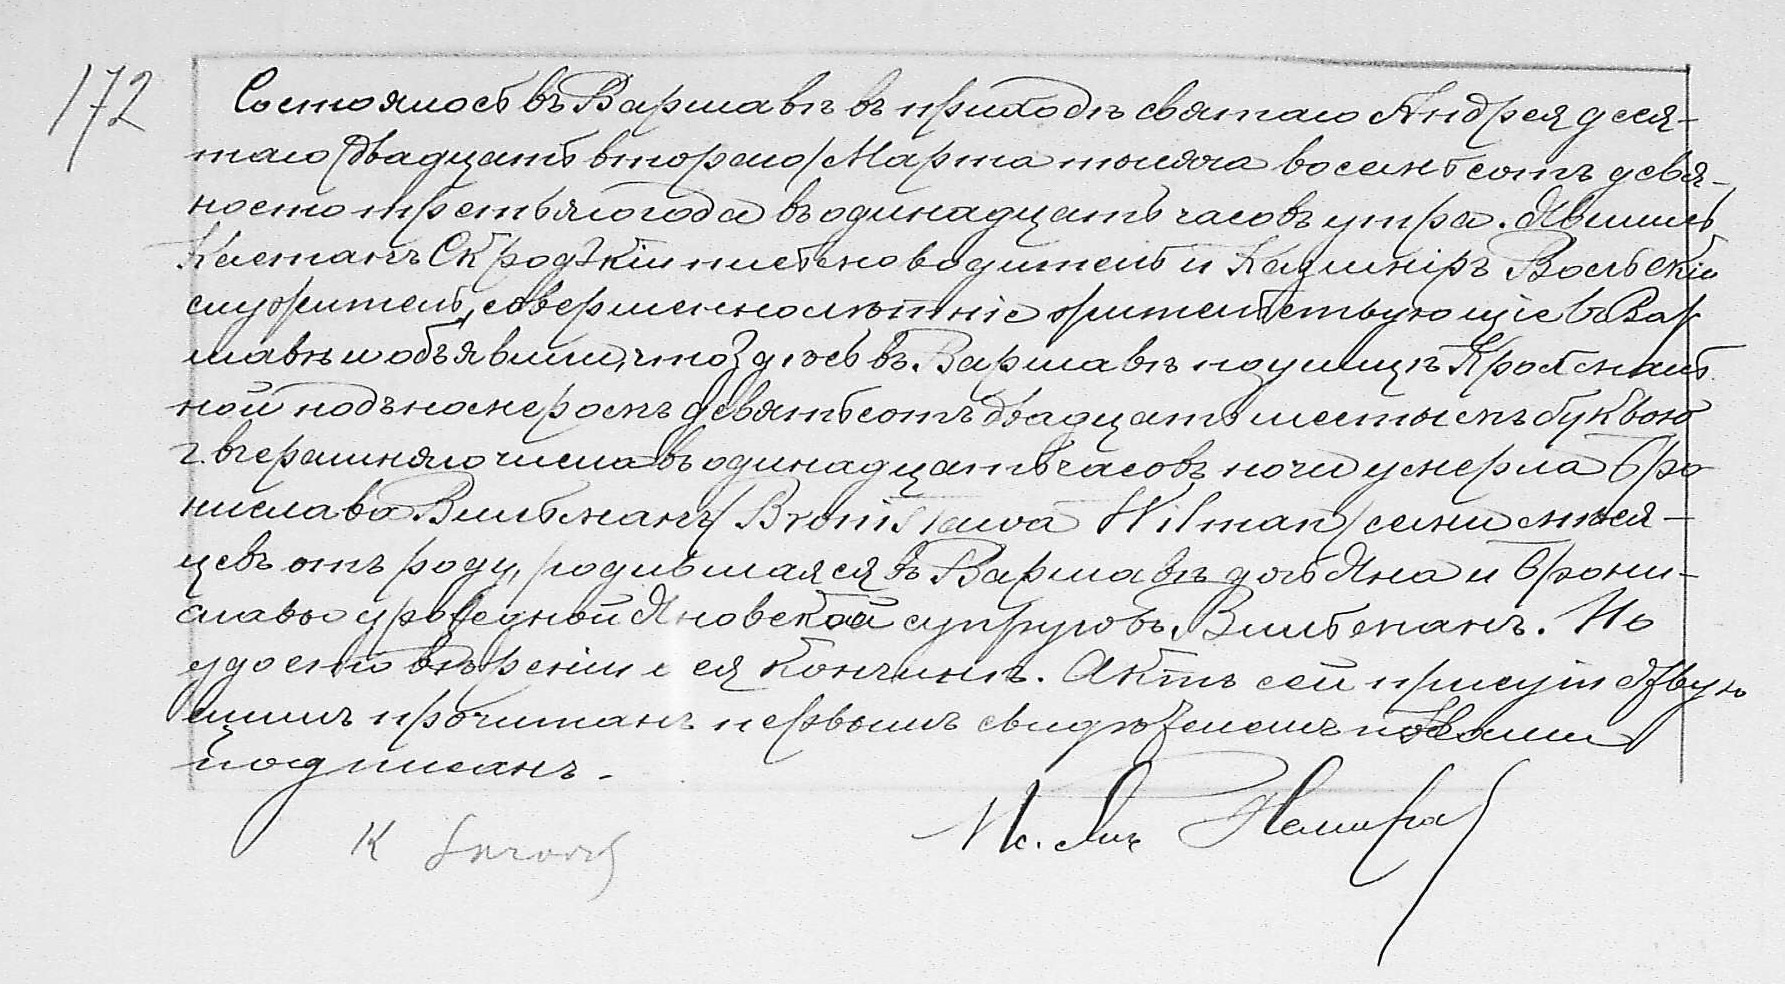 172
Состоялось въ Варшавѣ въ приходѣ святаго Андрея деся-
таго /двадцать втораго/ Марта тысяча восемьсотъ девя-
носто третьяго года въ одинадцать часовъ утра. Явились
Каетанъ Скродзкій письмоводитель и Казимиръ Вольскій
служитель, совершеннолѣтніе жительствующіе въ Вар
шавѣ и объявили, что здѣсь въ Варшавѣ по улицѣ Крохмаль
ной подъ номеромъ девятьсотъ двадцать шестымъ буквою
г. вчерашняго числа въ одинадцать часовъ ночи умерла Бро
нислава Вильманъ /Bronisława Wilman/ семи мѣся-
цевъ отъ роду, родившаяся въ Варшавѣ дочь Яна и Брони-
славы урожденной Яновской супруговъ Вильманъ. По
удостовѣреніи о ея кончинѣ. Актъ сей присутствую
щимъ прочитанъ первымъ свидѣтелемъ и нами
подписанъ.
К